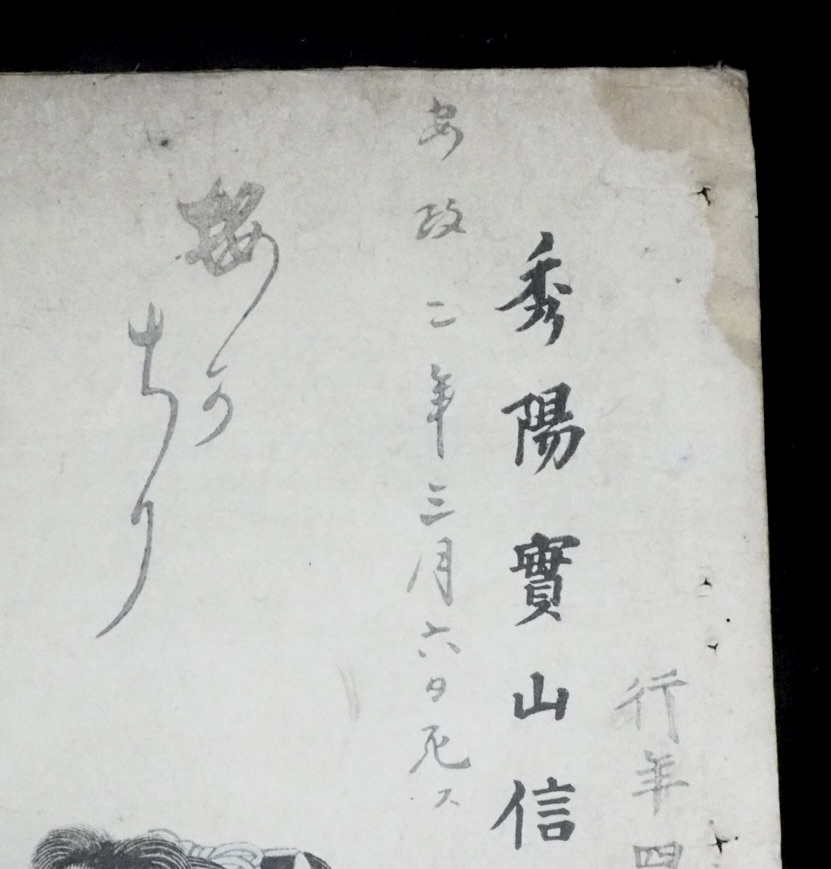 行年四
秀陽實山信
安政二年三月六日死ス
ちり